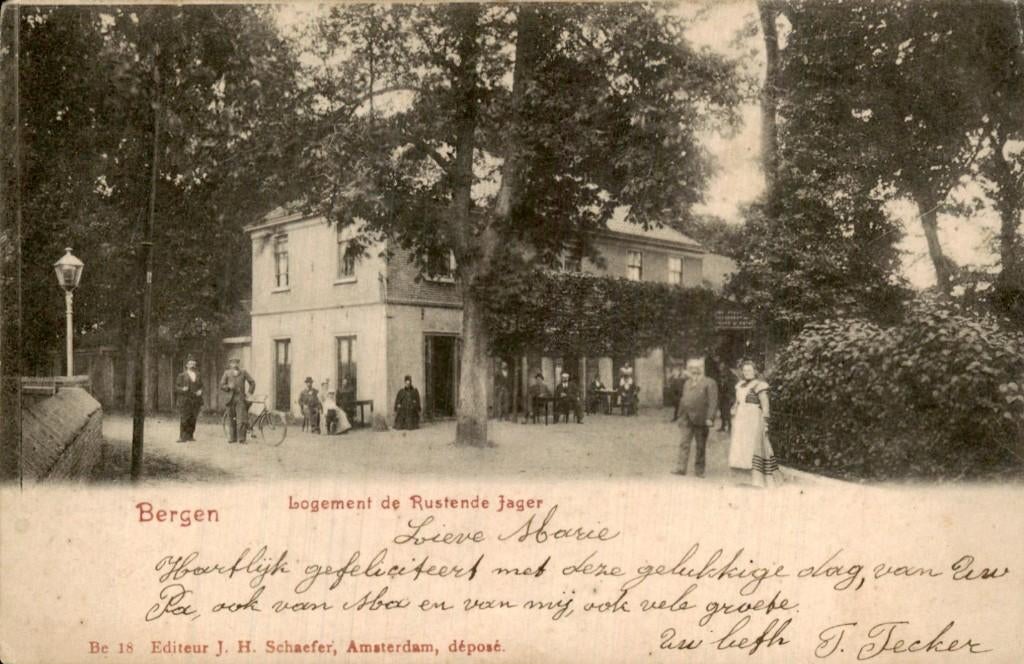 Bergen
Logement de Rustende Jager
Lieve Marie
Hartlijk gefeliciteert met deze gelukkige dag, van Uw
Pa, ook van Ma en van mij, ook vele groete.
Uw
Be 18 Editeur J. H. Schaefer, Amsterdam, déposé.